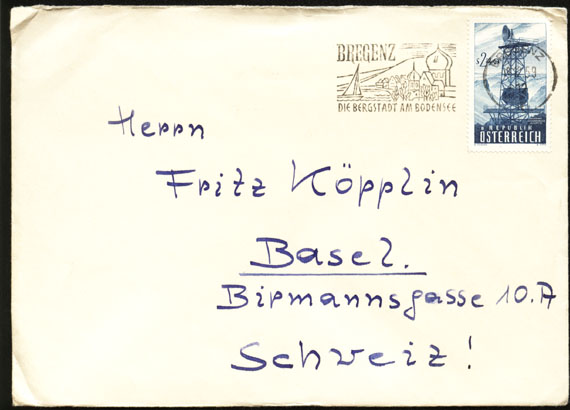 BREGENZ
DIE BERGSTADT AM BODENSEE
BREGENZ
REPUBLIK
ÖSTERREICH
Herrn
Fritz Köpplin
Basel.
Birmannsgasse 10.A
Schweiz!